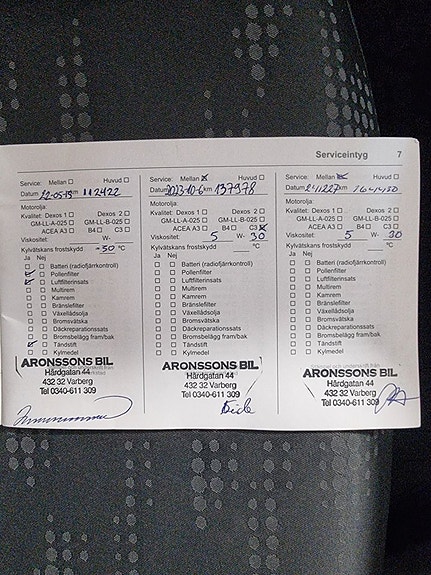 Serviceintyg 7
Service: Mellan Huvud
Datum 22-05-18 km 112422
Motorolja:
Kvalitet: Dexos 1 Dexos 2
GM-LL-A-025 GM-LL-B-025
ACEA A3 B4 C3
Viskositet: W-
Kylvätskans frostskydd -30 °C
Ja Nej
Batteri (radiofjärrkontroll)
Pollenfilter
Luftfilterinsats
Multirem
Kamrem
Bränslefilter
Växellådsolja
Bromsvätska
Däckreparationssats
Bromsbelägg fram/bak
Tändstift
Kylmedel
ARONSSONS BIL
Hårdgatan 44
432 32 Varberg
Tel 0340-611 309
Service: Mellan Huvud
Datum 2023-10-6 km 137978
Motorolja:
Kvalitet: Dexos 1 Dexos 2
GM-LL-A-025 GM-LL-B-025
ACEA A3 B4 C3
Viskositet: 5 W- 30
Kylvätskans frostskydd °C
Ja Nej
Batteri (radiofjärrkontroll)
Pollenfilter
Luftfilterinsats
Multirem
Kamrem
Bränslefilter
Växellådsolja
Bromsvätska
Däckreparationssats
Bromsbelägg fram/bak
Tändstift
Kylmedel
ARONSSONS BIL
Hårdgatan 44
432 32 Varberg
Tel 0340-611 309
Service: Mellan Huvud
Datum 241227 km
Motorolja:
Kvalitet: Dexos 1 Dexos 2
GM-LL-A-025 GM-LL-B-025
ACEA A3 B4 C3
Viskositet: 5 W- 30
Kylvätskans frostskydd °C
Ja Nej
Batteri (radiofjärrkontroll)
Pollenfilter
Luftfilterinsats
Multirem
Kamrem
Bränslefilter
Växellådsolja
Bromsvätska
Däckreparationssats
Bromsbelägg fram/bak
Tändstift
Kylmedel
ARONSSONS BIL
Hårdgatan 44
432 32 Varberg
Tel 0340-611 309